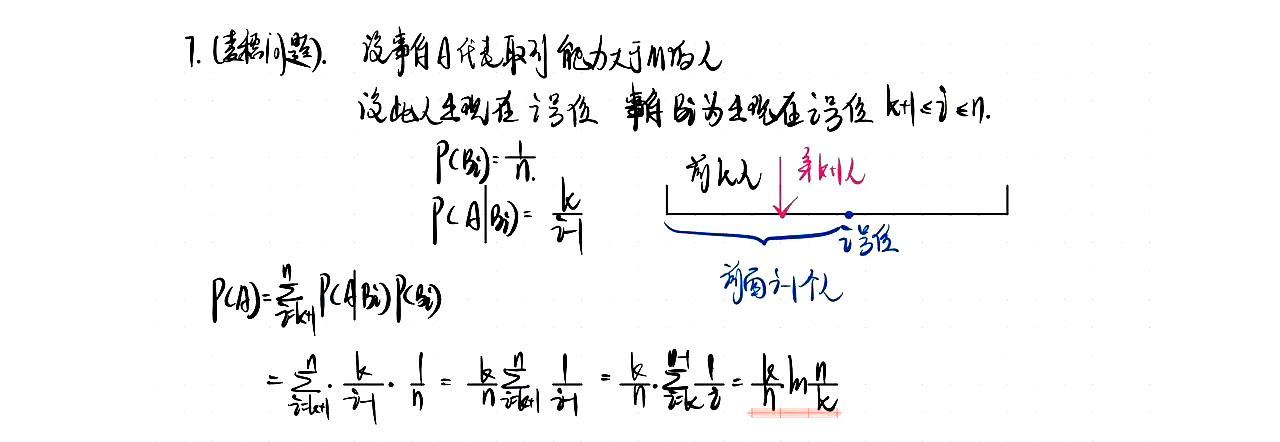 7. (麦穗问题). 设事件A代表取到能力大于M的人
设此人出现在 i号位 事件Bi为出现在i号位 k+1≤i≤n.
P(Bi)=1/n.
P(A|Bi)= k/(i-1)
前k人 第k+1人
i号位
前面i-1个人
P(A)=∑_{i=k+1}^{n} P(A|Bi)P(Bi)
= ∑_{i=k+1}^{n} · k/(i-1) · 1/n = k/n ∑_{i=k+1}^{n} 1/(i-1) = k/n · ∑_{i=k}^{n-1} 1/i = k/n · ln n/k